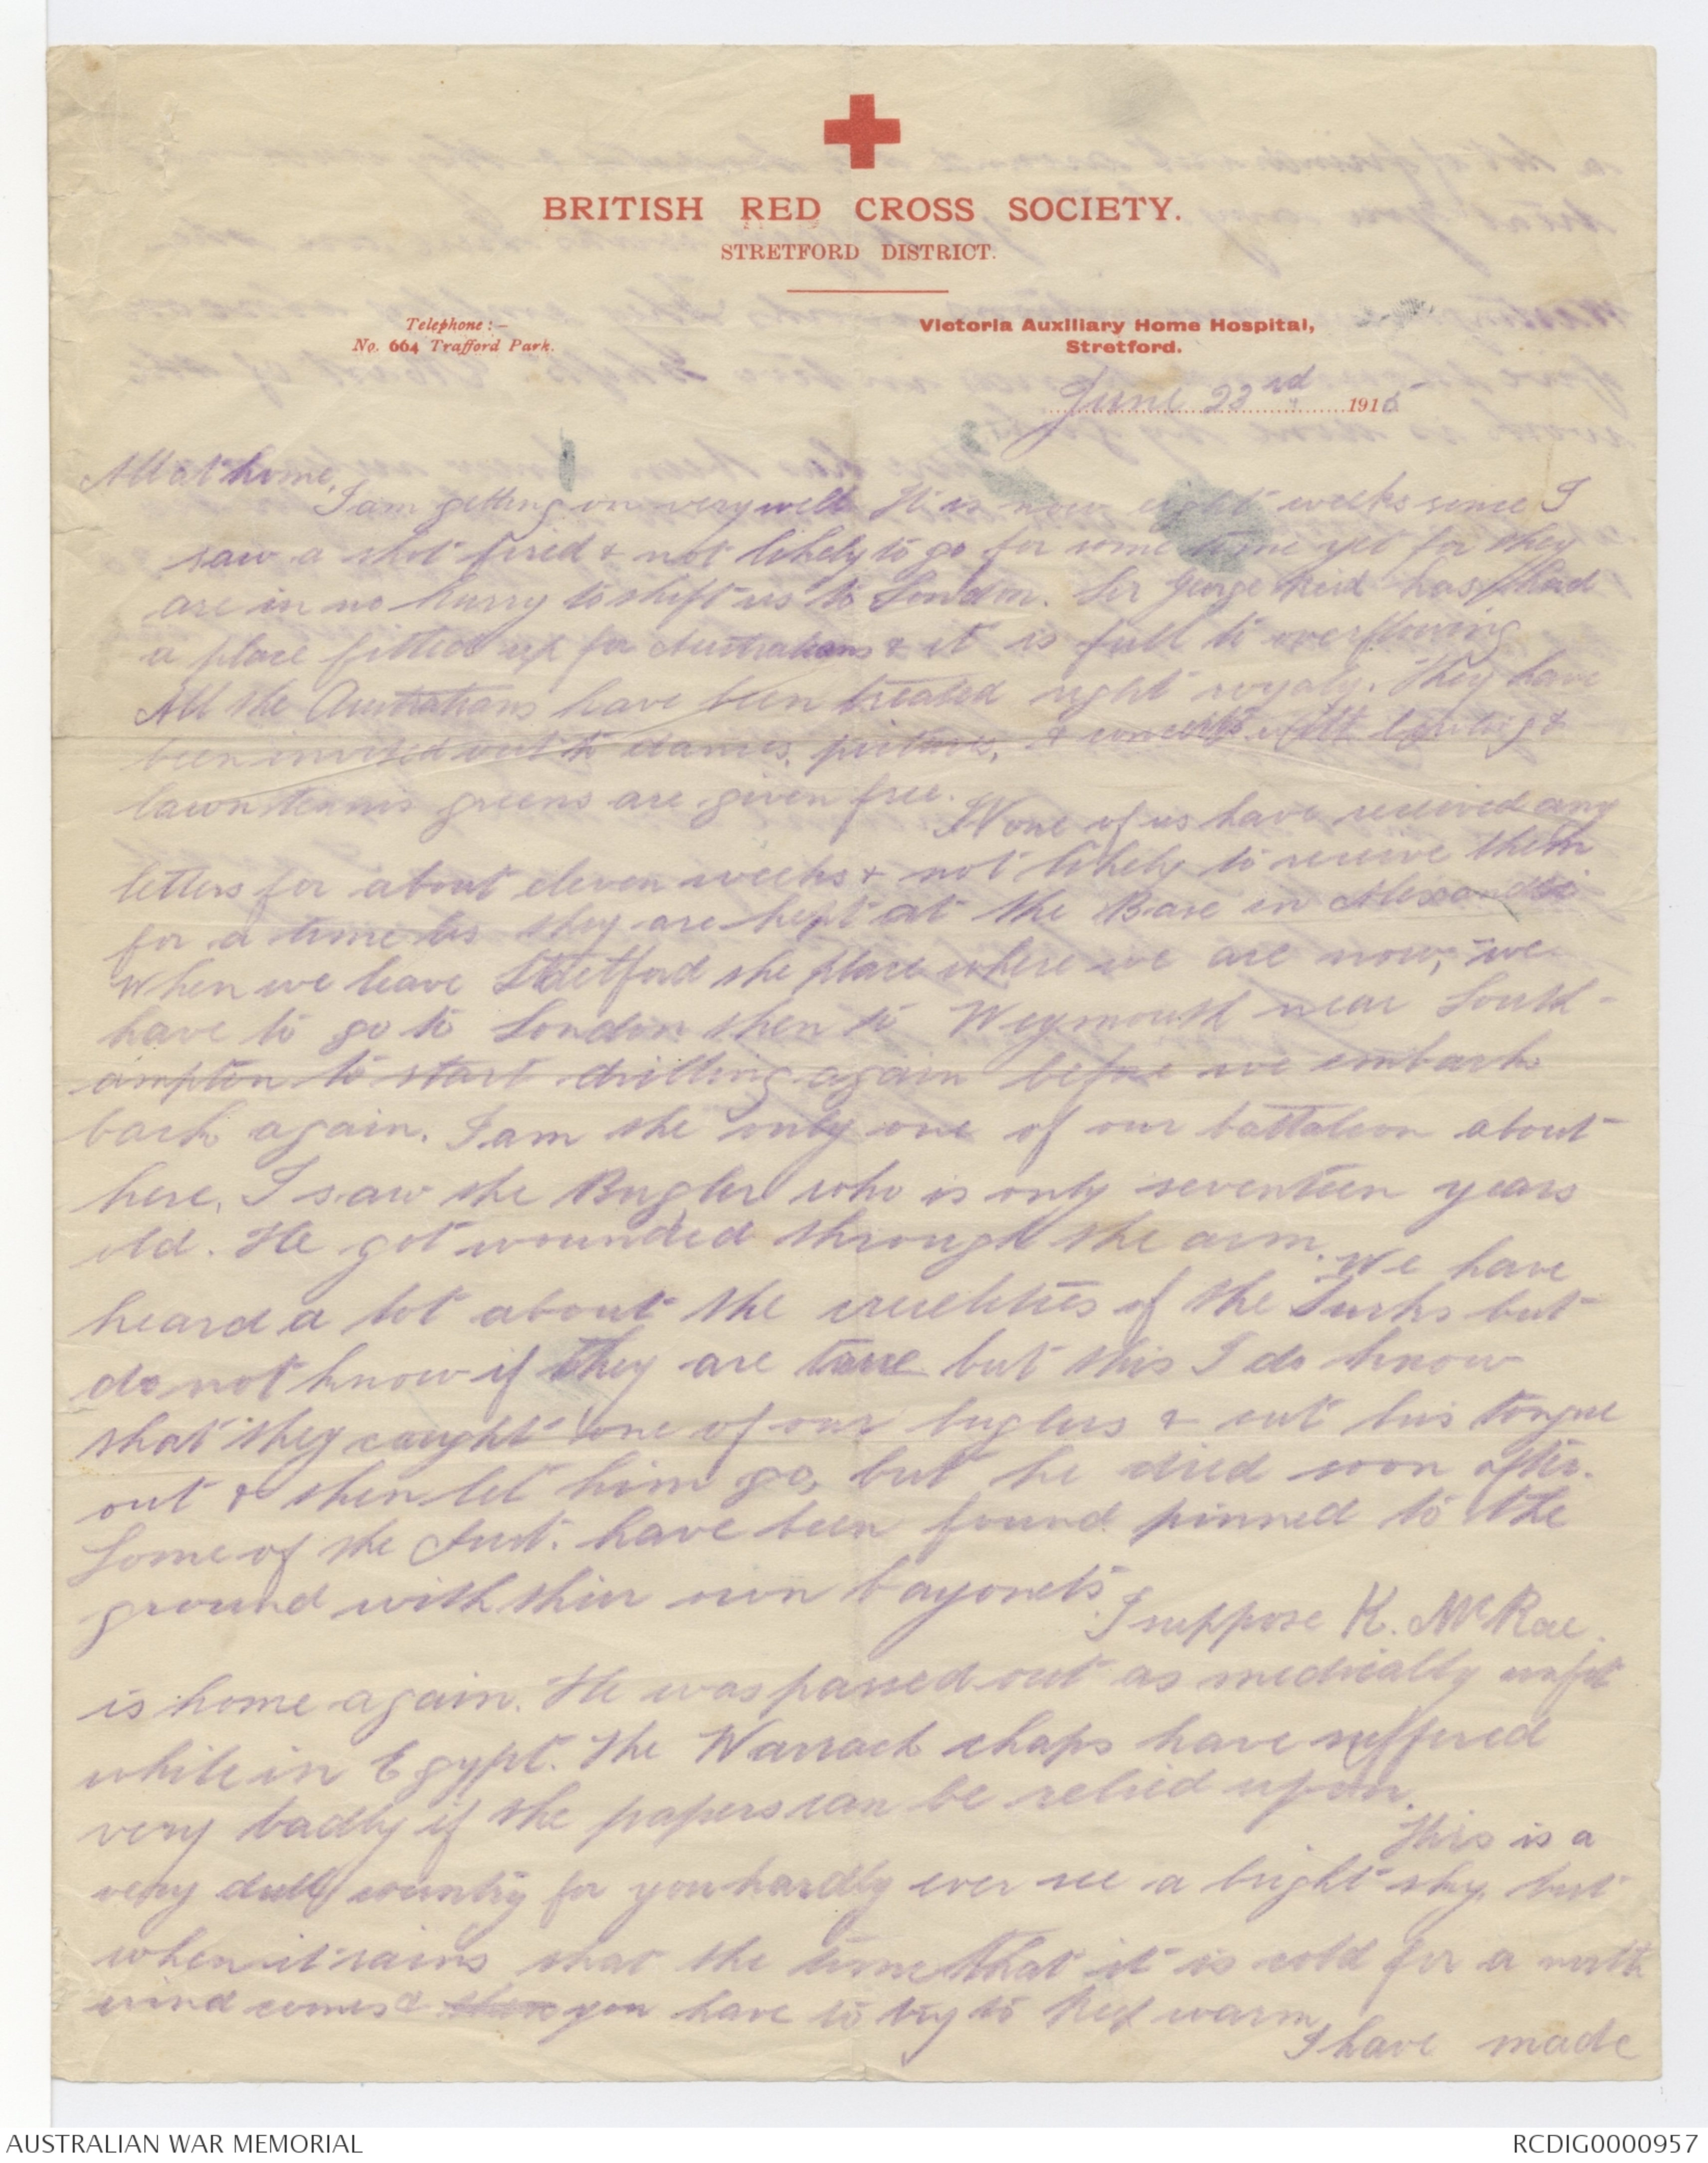 BRITISH RED CROSS SOCIETY.
STRETFORD DISTRICT.
Telephone :—
No. 664 Trafford Park.
Victoria Auxiliary Home Hospital,
Stretford.
June 23rd 1915
All at home,
I am getting on very well. It is now eight weeks since I
saw a shot fired & not likely to go for some time yet for they
are in no hurry to shift us to London. Sir George Reid has had
a place fitted up for Australians & it is full to overflowing
All the Australians have been treated right royaly. They have
been invited out to dances, pictures, & concerts with &
lawn tennis greens are given free.
None of us have received any
letters for about eleven weeks & not likely to receive them
for a time as they are kept at the Base in
When we leave Stretford the place where we are now, we
have to go to London then to Weymouth near South-
ampton to start drilling again before we embark
back again. I am the only one of our battaleon about
here. I saw the Bugler who is only seventeen years
old. He got wounded through the arm.
We have
heard a lot about the cruelities of the Turks but
do not know if they are true but this I do know
that they caught one of our buglers & cut his tongue
out & then let him go, but he died soon after.
Some of the Aust. have been found pinned to the
ground with thier own bayonets.
I suppose K. McRae.
is home again. He was passed out as medically unfit
while in Egypt. The Warrack chaps have suffered
very badly if the papers can be relied upon.
This is a
very dull country for you hardly ever see a bright sky, but
when it rains that the time that it is cold for a north
wind comes & you have to try to keep warm.
I have made
AUSTRALIAN WAR MEMORIAL
RCDIG0000957